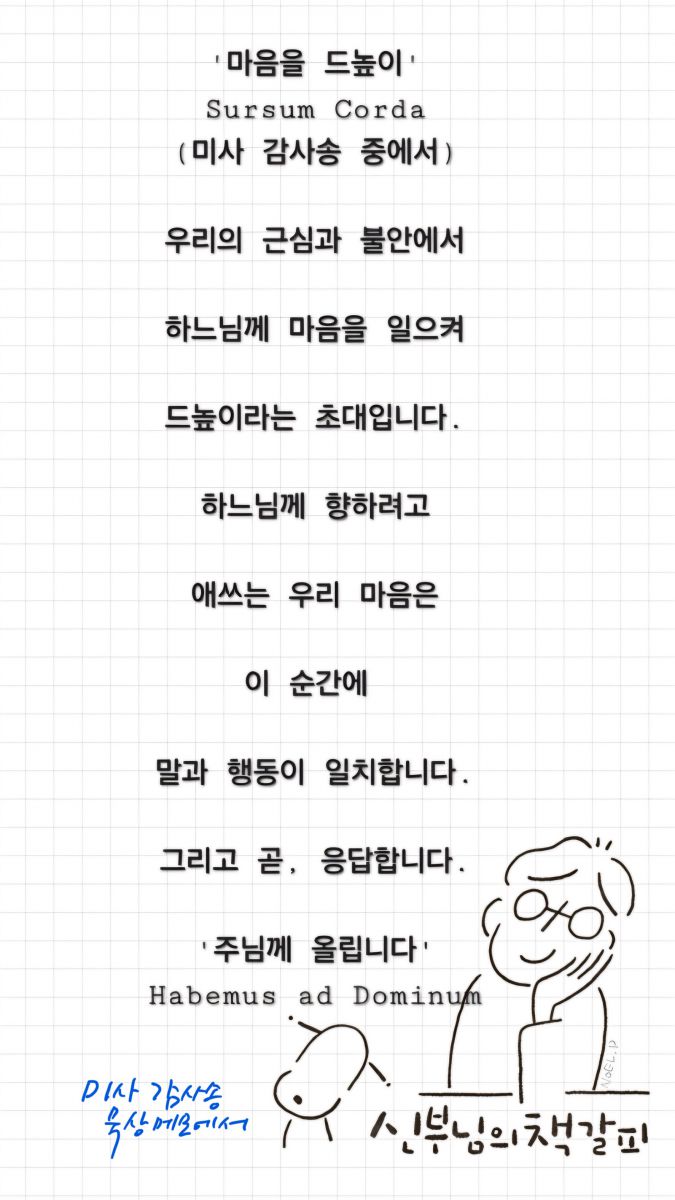 '마음을 드높이'
Sursum Corda
(미사 감사송 중에서)
우리의 근심과 불안에서
하느님께 마음을 일으켜
드높이라는 초대입니다.
하느님께 향하려고
애쓰는 우리 마음은
이 순간에
말과 행동이 일치합니다.
그리고 곧, 응답합니다.
'주님께 올립니다'
Habemus ad Dominum
NOEL.D
미사 감사송
묵상 메모에서
신부님의 책갈피